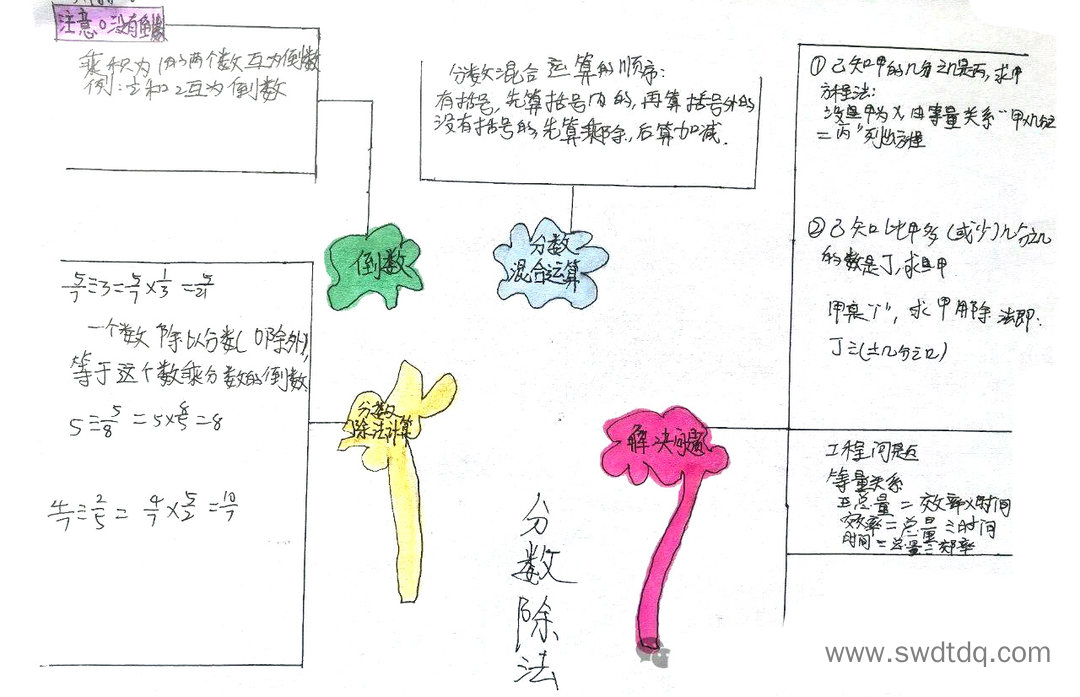 注意:0没有倒数
乘积为1的两个数互为倒数
例:½和2互为倒数
分数混合运算的顺序:
有括号,先算括号内的,再算括号外的
没有括号的,先算乘除,后算加减.
①已知甲的几分之几是丙,求甲
方程法:
设甲为X,由等量关系"甲×几分之
=丙"列出方程
②已知比甲多(或少)几分之几
的数是丁,求甲
"1",求甲用除法即:
丁÷(±几分之几)
倒数
分数
混合运算
5/7÷3=5/7×1/3=5/21
一个数除以分数(0除外),
等于这个数乘分数的倒数
5÷5/8=5×8/5=8
4/7÷2/5=4/7×5/2=10/7
分数
除法计算
解决问题
工程问题
等量关系
总量=效率×时间
效率=总量÷时间
时间=总量÷效率
分数除法
www.swdtdq.com